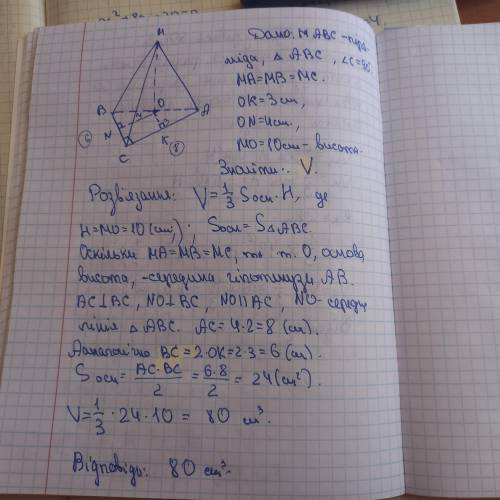 Дано: МАВС – піра-
М
міда, △ABC, ∠C=90°
MA=MB=MC.
OK=3 cm,
ON=4cm,
MO=10cm – висота.
Знайти: V.
B
O
A
N
K
C
6
8
Розв'язання: V=1/3 Sосн·H, де
H=MO=10 (cm); Sосн=S△ABC.
Оскільки MA=MB=MC, то т. O, основа
висоти, – середина гіпотенузи AB.
AC⊥BC, NO⊥BC, NO||AC, NO – середня
лінія △ABC. AC=4·2=8 (cm).
Аналогічно BC=2·OK=2·3=6 (cm).
Sосн=AC·BC/2=6·8/2=24(cm²).
V=1/3·24·10=80 cm³.
Відповідь: 80 cm³.